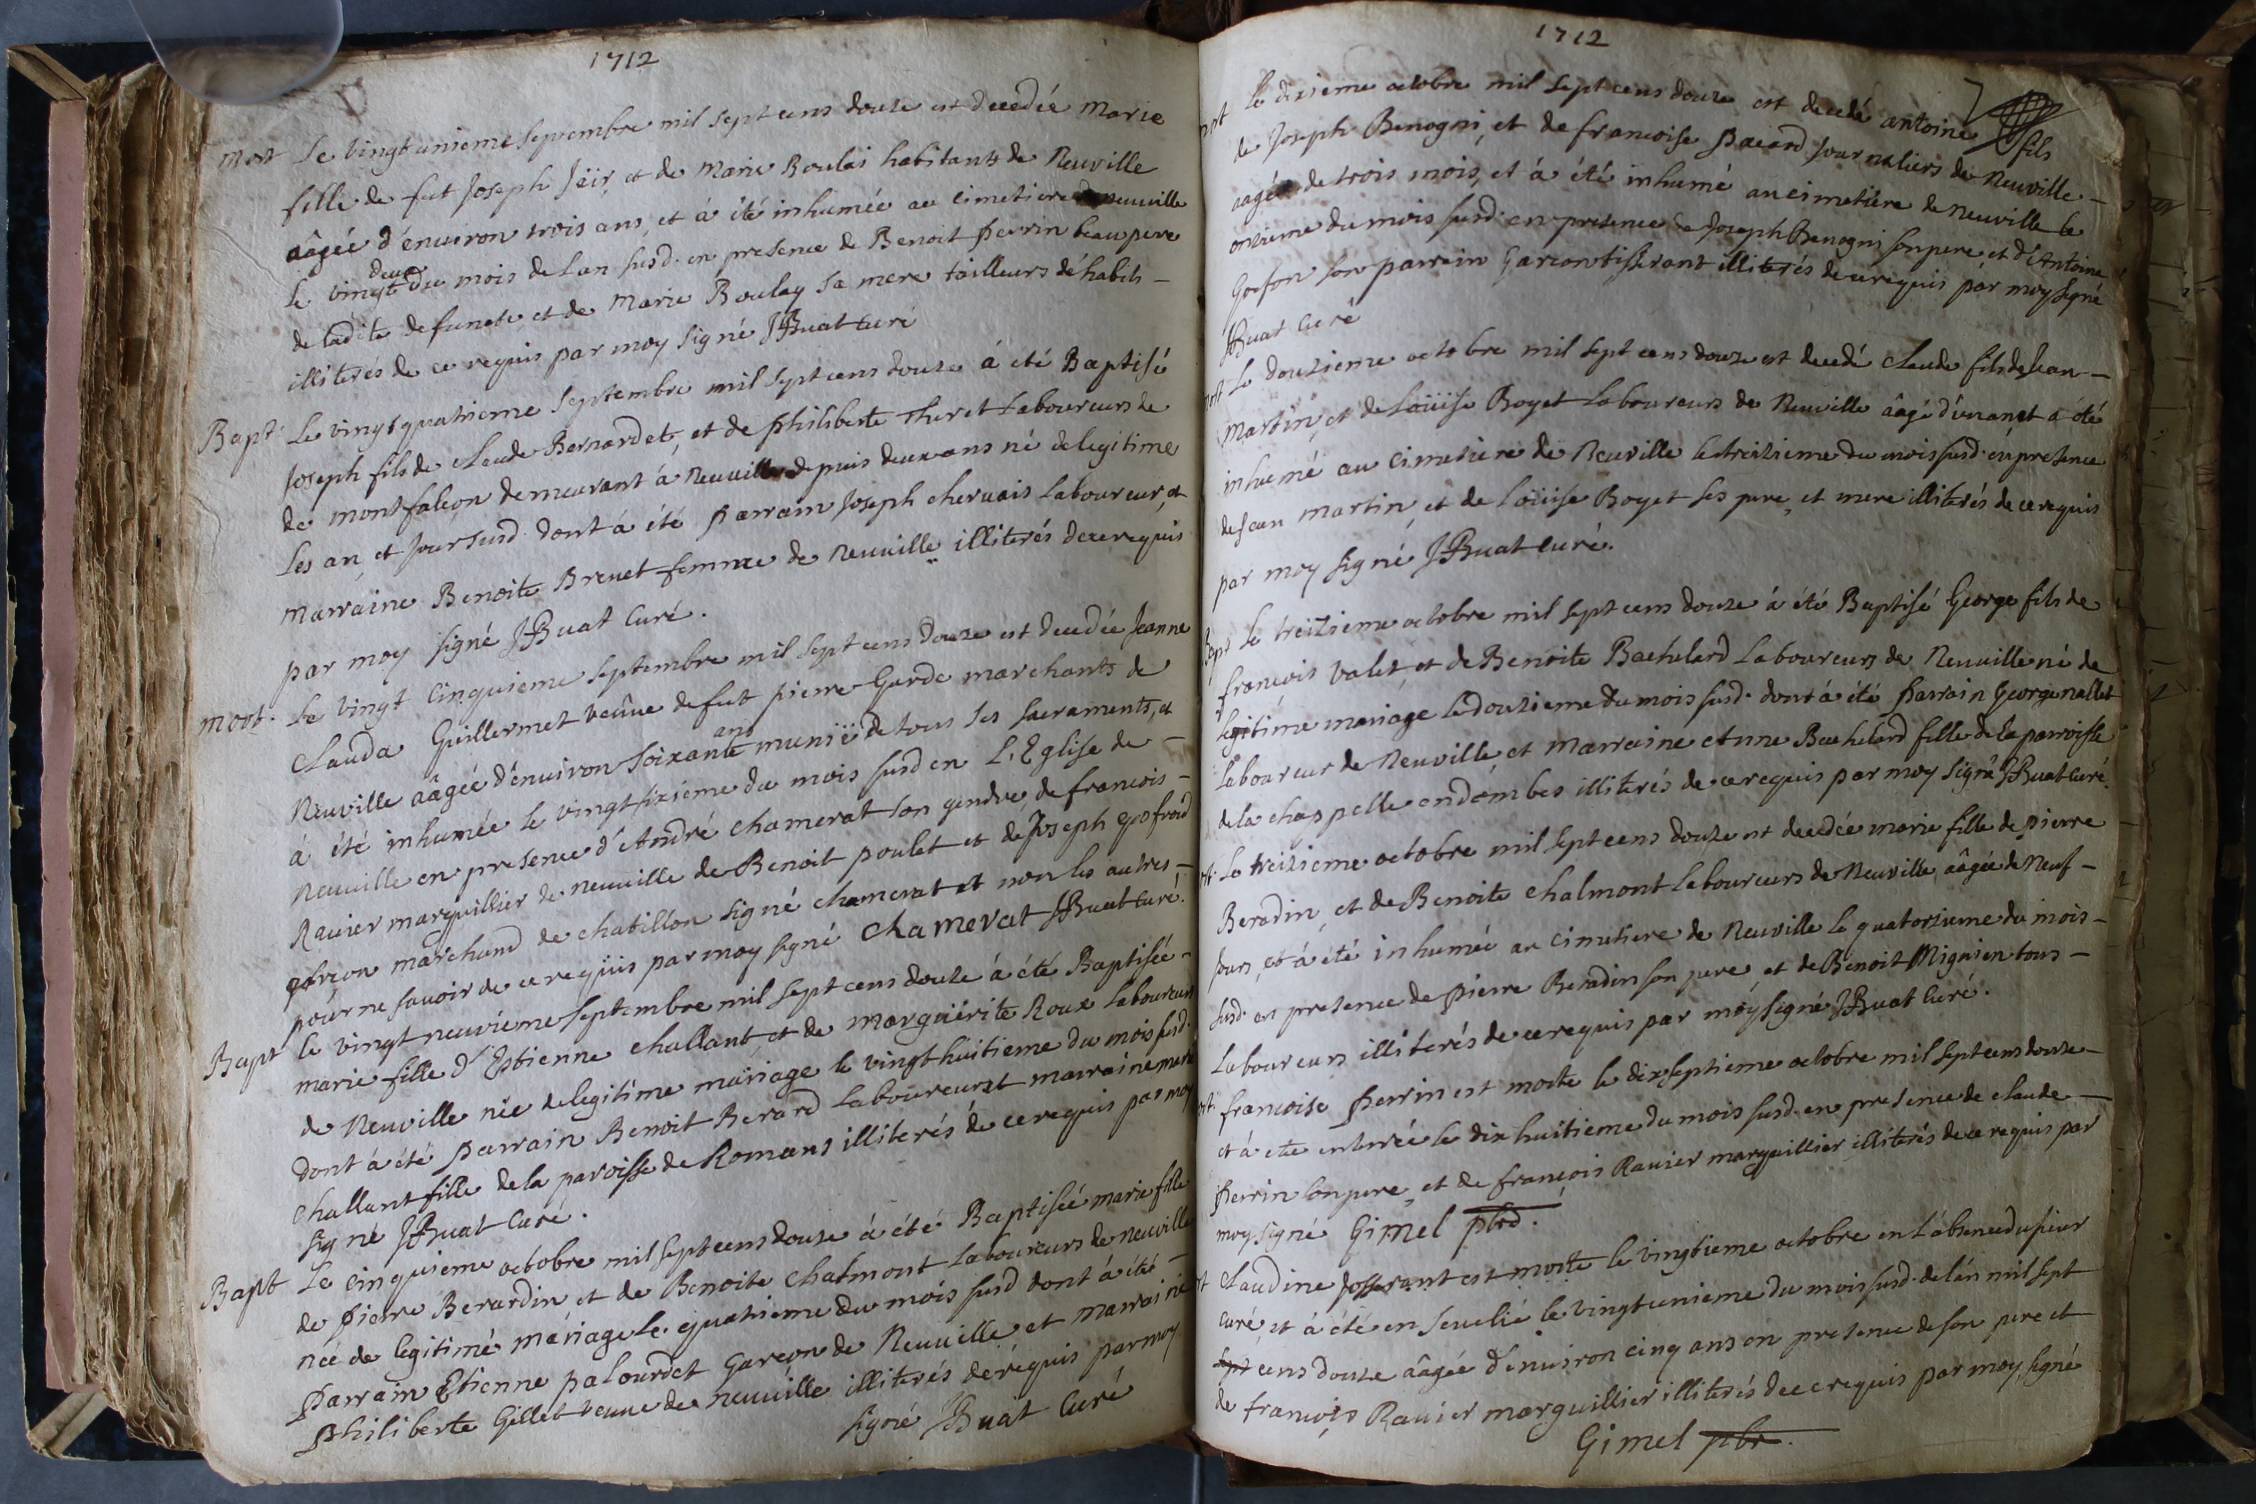 1712
Mort Le vingt unieme septembre mil sept cens douze est decedée Marie
fille de fut Joseph Jäir et de Marie Boulai habitants de Neuville
aâgée d'enuiron trois ans, et á été inhumée au cimetiere de neuuille
le vingt deux du mois de lan susd. en presence de Benoit perrin beaupere
de ladite defuncte et de Marie Boulay sa mere tailleurs d'habits –
illiterés de ce requis par moy signé JBuat curé
Bapt. Le vingt quatrieme septembre mil sept cens douze á été Baptisé
Joseph fils de claude Bernardet, et de philiberte Theret Laboureurs de
de montfalcon demeurant á neuuille depuis deux ans né de legitime
Les an, et jour susd. dont á été parrain Joseph cheruais Laboureur, et
Marraine Benoite Breuet femme de neuuille illiterés de ce requis
par moy signé JBuat Curé.
Mort. Le vingt Cinquieme septembre mil sept cens douze est decedée Jeanne
Clauda Guillermet veûue de fut pierre Garde marchants de
Neuville aâgée d'enuiron soixante ans munië de tous ses sacraments, et
á été inhumée le vingt sixieme du mois susd en L'Eglise de –
Neuuille en presence d'André chamerat son gendre, de francois –
Rauier marguillier de neuuille de Benoit poulet et de Joseph gofroid
garçon marchand de chatillon signé chamerat et non les autres –
pour ne sauoir de ce requis par moy signé Chamerat JBuat Curé.
Bapt Le vingt neuvieme septembre mil sept cens douze á été Baptisée –
marie fille d'Estienne challant, et de marguërite Roux Laboureurs
de Neuville née de legitime mariage le vingt huitieme du mois susd.
dont á été parrain Benoit Berard Laboureur et marraine marie
challant fille de la paroisse de Romans illiterés de ce requis par moy
signé JBuat Curé.
Bapt Le cinquieme octobre mil sept cens douze á été Baptisée marie fille
de pierre Berardin et de Benoite chalmont Laboureurs de neuville
née de legitime mariage le quatrieme du mois susd dont á été –
parrain Etienne palourdet garcon de Neuuille et marraine
philiberte Gillet veuue de neuuille illiterés de requis par moy
signé JBuat Curé
1712
Le dixieme octobre mil sept cens douze est decedé antoine fils
de Joseph Benogni, et de francoise pacard Journaliers de Neuville –
aagé de trois mois, et á été inhumé au cimetiere de neuville le
onzieme du mois susd. en presence de Joseph Benogni son pere et d'Antoine
Gofon son parrain Garcon tisserant illiterés de ce requis par moy signé
JBuat Curé
Mort Le douzieme octobre mil sept cens douze est decedé claude fils de Jean –
Martin, et de Loüise Boyet Laboureurs de Neuuille âagé d'un an et á été
inhumé au cimetiere de Neuville le treizieme du mois susd. en presence
de Jean martin, et de Loüise Boyet ses pere, et mere illiterés de ce requis
par moy signé JBuat Curé.
Bapt Le treizieme octobre mil sept cens douze á été Baptisé George fils de
francois valet, et de Benoite Bachelard Laboureurs de Neuuille né de
legitime mariage le douzieme du mois susd. dont á été parrain George nallet
Laboureur de Neuville et marraine Anne Bachelard fille de la parroisse
de la chappelle en dombes illiterés de ce requis par moy signé JBuat curé.
Le treizieme octobre mil sept cens douze est decedée marie fille de pierre
Berardin, et de Benoite chalmont Laboureurs de Neuville, aâgée de neuf –
jours, et á été inhumée au cimetiere de Neuville le quatorzieme du mois –
susd. en presence de pierre Berardin son pere, et de Benoit Mignien tous –
Laboureurs illiterés de ce requis par moy signé JBuat Curé.
francoise perrin est morte le dix septieme octobre mil sept cens douze –
et á ete enterrée le dix huitieme du mois susd. en presence de claude –
perrin son pere, et de françois Rauier marguillier illiterés de ce requis par
moy signé Gimel pbre.
Claudine Josserant est morte le vingtieme octobre en L'absence du sieur
curé et á été en seuelié le vingt unieme du mois susd. de l'an mil sept
sept cens douze aâgée d'enuiron cinq ans en presence de son pere et
de françois Rauier marguillier illiterés de ce requis par moy, signé
Gimel pbr.